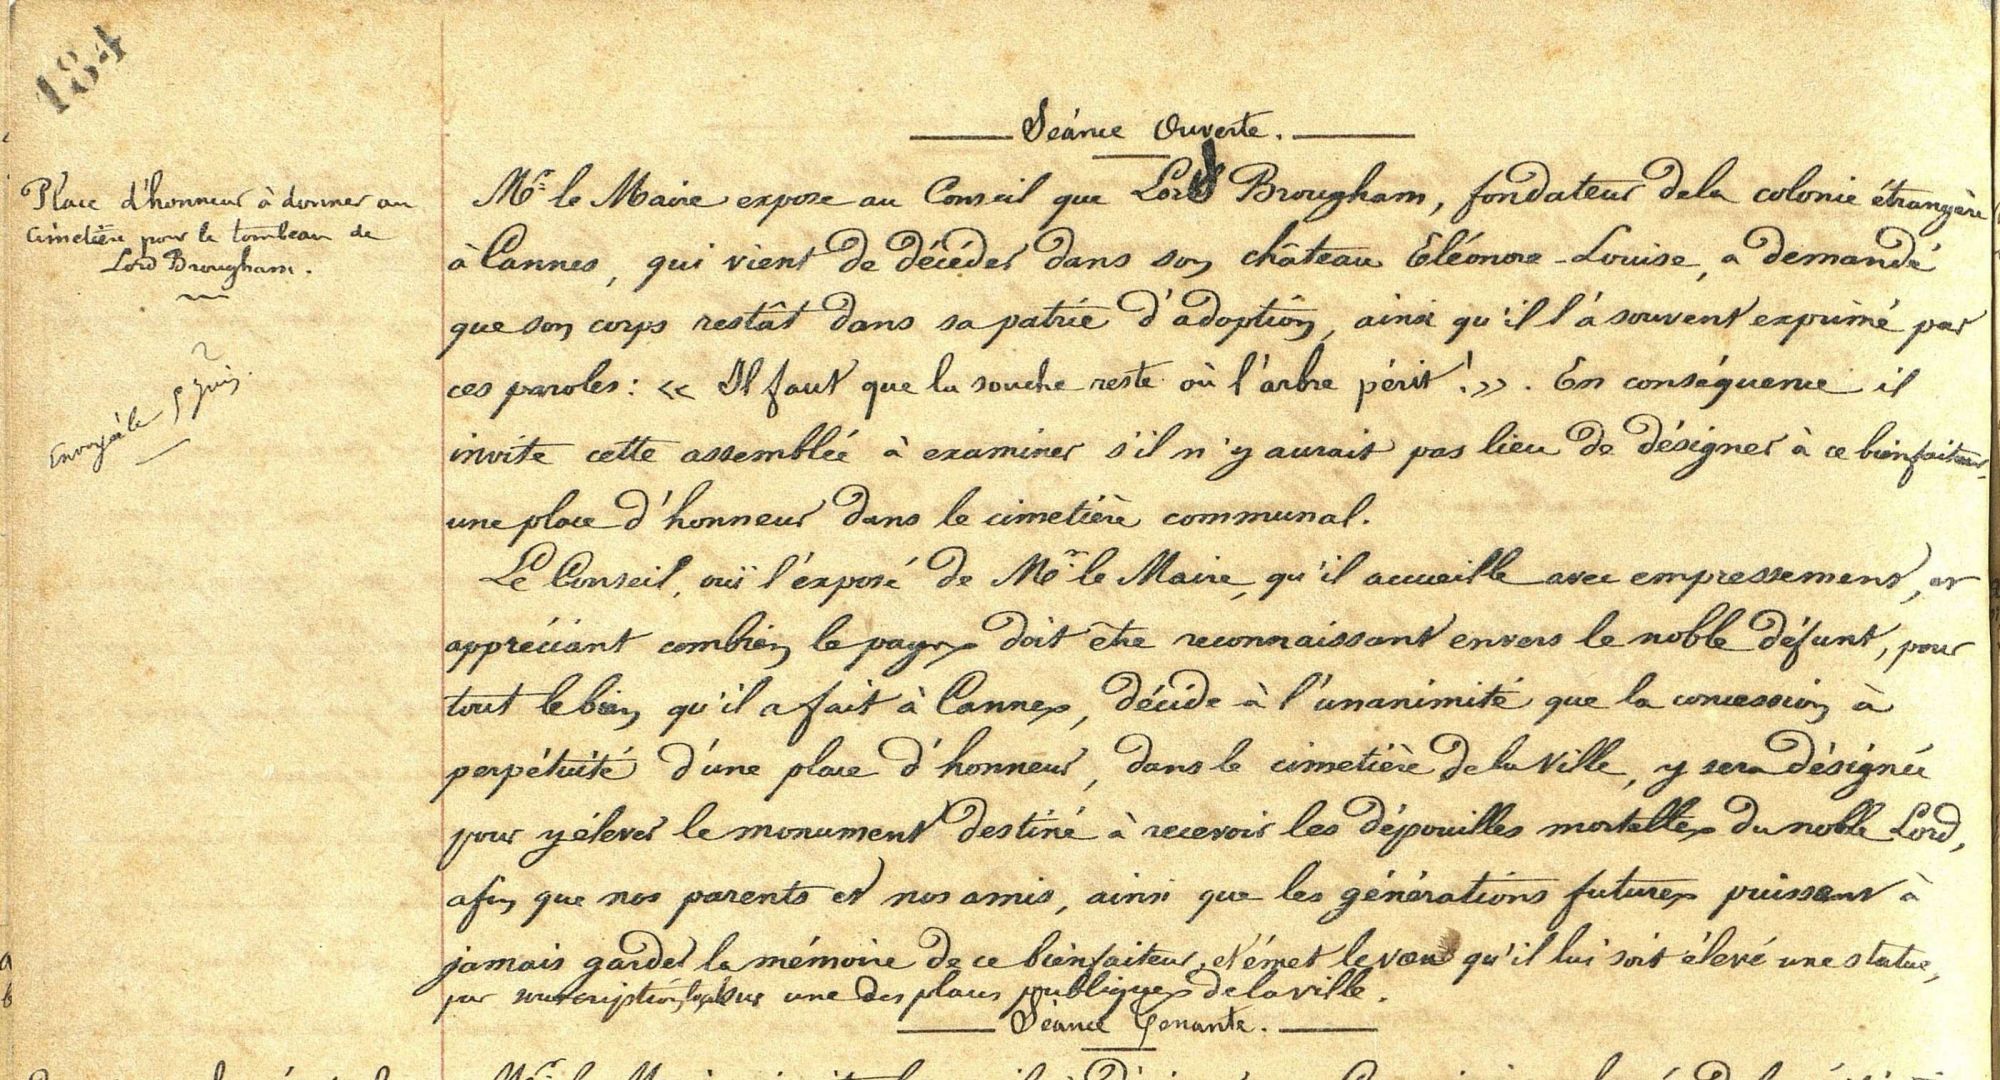 184
Séance Ouverte.
Place d'honneur à donner au
cimetière pour le tombeau de
Lord Brougham.
Envoyé le 9 Juin
Mr. le Maire expose au Conseil que Lord Brougham, fondateur de la colonie étrangère
à Cannes, qui vient de décéder dans son château Eléonore-Louise, a demandé
que son corps restât dans sa patrie d'adoption, ainsi qu'il l'a souvent exprimé par
ces paroles : « Il faut que la souche reste où l'arbre périt ! ». En conséquence il
invite cette assemblée à examiner s'il n'y aurait pas lieu de désigner à ce bienfaiteur
une place d'honneur dans le cimetière communal.
Le Conseil, ouï l'exposé de Mr. le Maire, qu'il accueille avec empressement, et
appréciant combien le pays doit être reconnaissant envers le noble défunt, pour
tout le bien qu'il a fait à Cannes, décide à l'unanimité que la concession à
perpétuité d'une place d'honneur, dans le cimetière de la Ville, y sera désignée
pour y élever le monument destiné à recevoir les dépouilles mortelles du noble Lord,
afin que nos parents et nos amis, ainsi que les générations futures puissent à
jamais garder la mémoire de ce bienfaiteur, et émet le vœu qu'il lui soit élevé une statue,
par souscription, sur une des places publiques de la ville.
Séance Tenante.